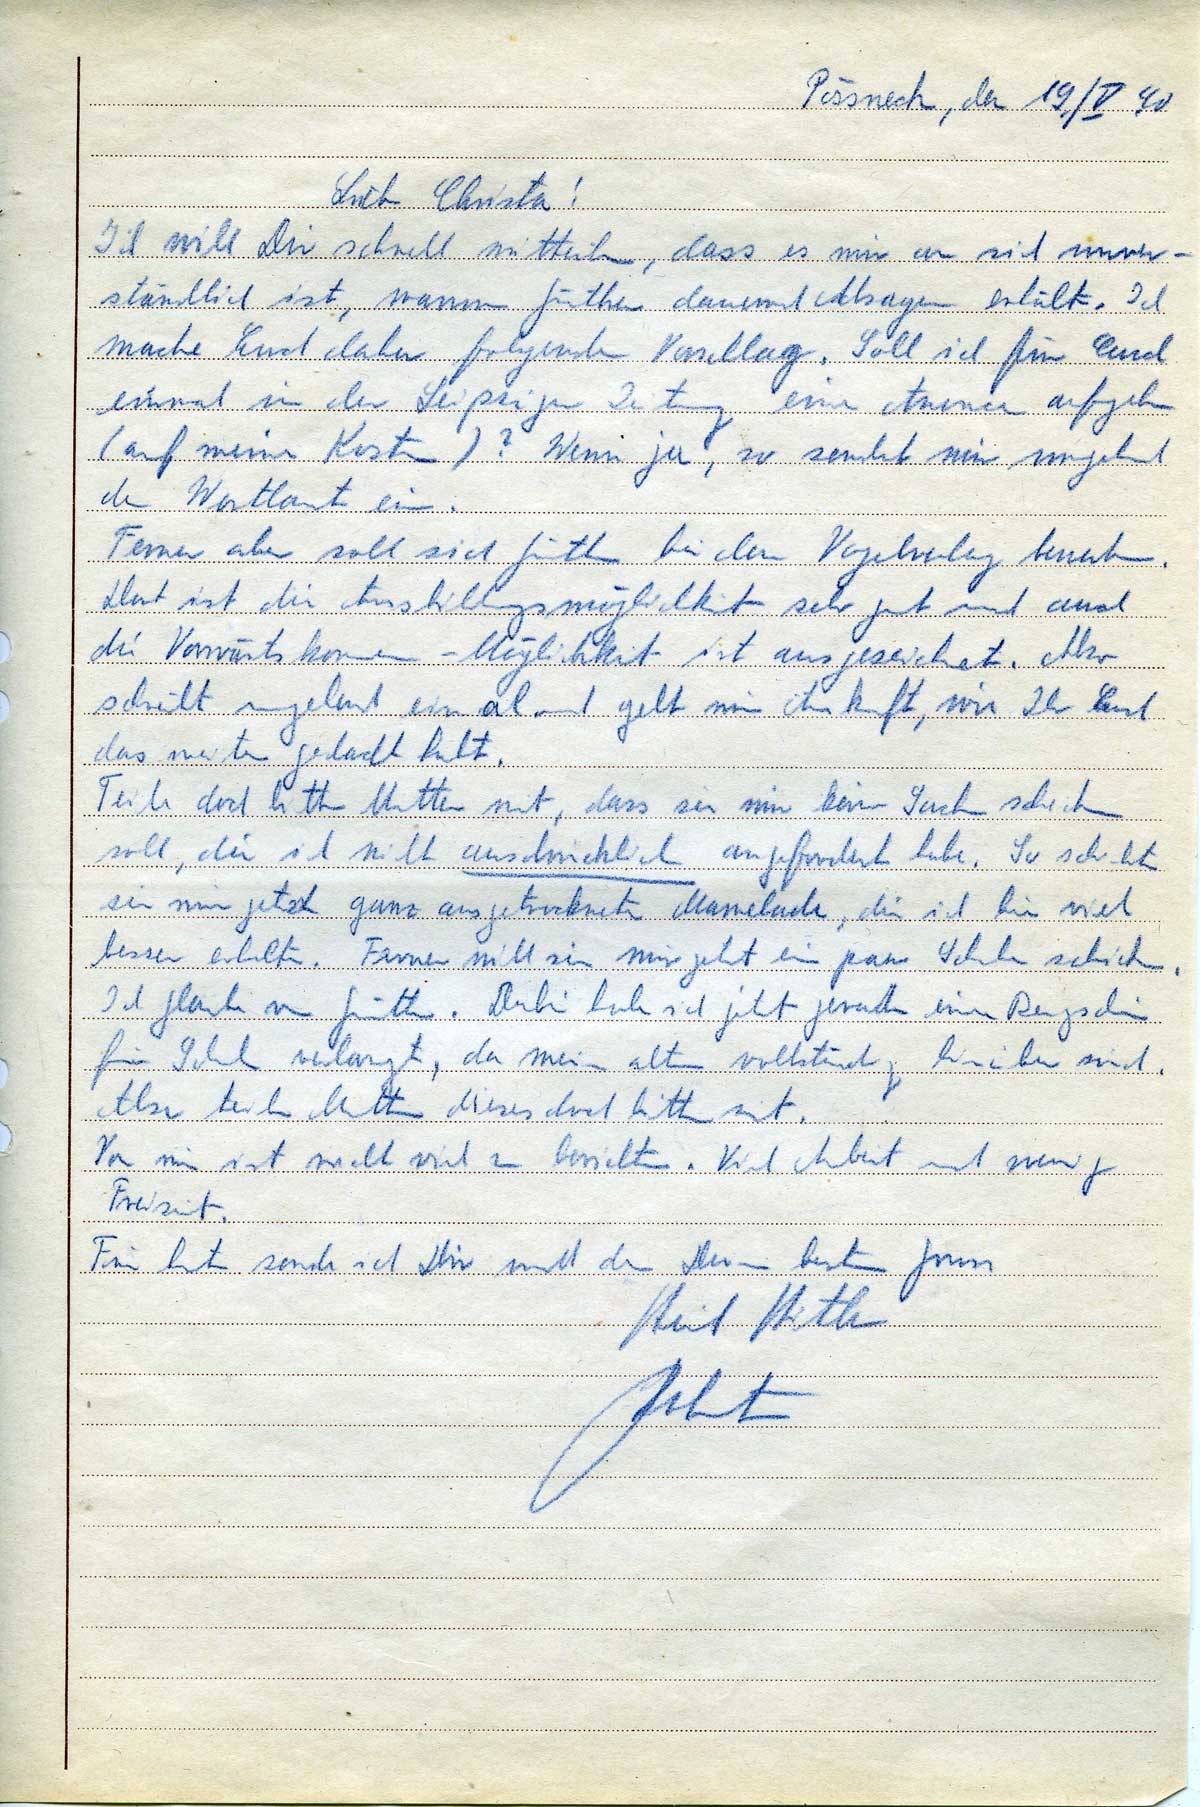 Pössneck, den 19/V 40
Liebe Christa!
Ich will Dir schnell mitteilen, dass es mir an sich unver-
ständlich ist, warum Günther dauernd Absagen erhält. Ich
mache Euch daher folgenden Vorschlag. Soll ich für Euch
einmal in der Leipziger Zeitung eine Annonce aufgeben
(auf meine Kosten)? Wenn ja, so sendet mir umgehend
den Wortlaut ein.
Ferner aber soll sich Günther bei dem Vogelverlag bewerben.
Dort ist die Ausbildungsmöglichkeit sehr gut und auch
die Vorwärtskommen-Möglichkeit ist ausgezeichnet. Also
schreibt umgehend einmal und gebt mir Auskunft, wie Ihr Euch
das weiter gedacht habt.
Teile doch bitte Mutter mit, dass sie mir keine Sachen schicken
soll, die ich nicht ausdrücklich angefordert habe. So schickte
sie mir jetzt ganz ausgetrocknete Marmelade, die ich hier viel
besser erhalte. Ferner will sie mir jetzt ein paar Schuhe schicken.
Ich glaube von Günther. Dabei habe ich jetzt gerade einen Bezugschein
für Schuhe verlangt, da meine alten vollständig hinüber sind.
Also teile Mutter dieses doch bitte mit.
Von mir ist nicht viel zu berichten. Viel Arbeit und wenig
Freizeit.
Für heute sende ich Dir und den Deinen beste Grüsse
Heil Hitler